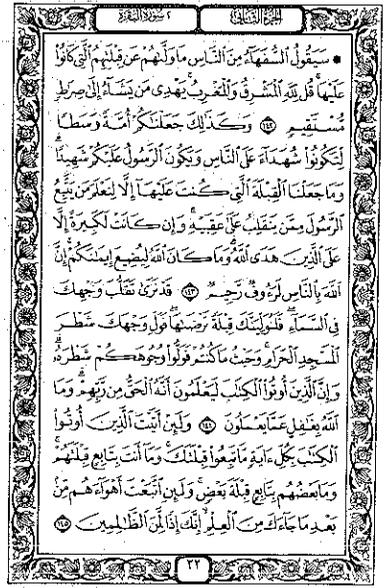 الجزء الثاني ٢ سورة البقرة
۞ سَيَقُولُ ٱلسُّفَهَآءُ مِنَ ٱلنَّاسِ مَا وَلَّىٰهُمْ عَن قِبْلَتِهِمُ ٱلَّتِى كَانُوا۟
عَلَيْهَا ۚ قُل لِّلَّهِ ٱلْمَشْرِقُ وَٱلْمَغْرِبُ ۚ يَهْدِى مَن يَشَآءُ إِلَىٰ صِرَٰطٍ
مُّسْتَقِيمٍ ١٤٢ وَكَذَٰلِكَ جَعَلْنَٰكُمْ أُمَّةً وَسَطًا
لِّتَكُونُوا۟ شُهَدَآءَ عَلَى ٱلنَّاسِ وَيَكُونَ ٱلرَّسُولُ عَلَيْكُمْ شَهِيدًا ۗ
وَمَا جَعَلْنَا ٱلْقِبْلَةَ ٱلَّتِى كُنتَ عَلَيْهَآ إِلَّا لِنَعْلَمَ مَن يَتَّبِعُ
ٱلرَّسُولَ مِمَّن يَنقَلِبُ عَلَىٰ عَقِبَيْهِ ۚ وَإِن كَانَتْ لَكَبِيرَةً إِلَّا
عَلَى ٱلَّذِينَ هَدَى ٱللَّهُ ۗ وَمَا كَانَ ٱللَّهُ لِيُضِيعَ إِيمَٰنَكُمْ ۚ إِنَّ
ٱللَّهَ بِٱلنَّاسِ لَرَءُوفٌ رَّحِيمٌ ١٤٣ قَدْ نَرَىٰ تَقَلُّبَ وَجْهِكَ
فِى ٱلسَّمَآءِ ۖ فَلَنُوَلِّيَنَّكَ قِبْلَةً تَرْضَىٰهَا ۚ فَوَلِّ وَجْهَكَ شَطْرَ
ٱلْمَسْجِدِ ٱلْحَرَامِ ۚ وَحَيْثُ مَا كُنتُمْ فَوَلُّوا۟ وُجُوهَكُمْ شَطْرَهُۥ ۗ
وَإِنَّ ٱلَّذِينَ أُوتُوا۟ ٱلْكِتَٰبَ لَيَعْلَمُونَ أَنَّهُ ٱلْحَقُّ مِن رَّبِّهِمْ ۗ وَمَا
ٱللَّهُ بِغَٰفِلٍ عَمَّا يَعْمَلُونَ ١٤٤ وَلَئِنْ أَتَيْتَ ٱلَّذِينَ أُوتُوا۟
ٱلْكِتَٰبَ بِكُلِّ ءَايَةٍ مَّا تَبِعُوا۟ قِبْلَتَكَ ۚ وَمَآ أَنتَ بِتَابِعٍ قِبْلَتَهُمْ ۚ
وَمَا بَعْضُهُم بِتَابِعٍ قِبْلَةَ بَعْضٍ ۚ وَلَئِنِ ٱتَّبَعْتَ أَهْوَآءَهُم مِّنۢ
بَعْدِ مَا جَآءَكَ مِنَ ٱلْعِلْمِ ۙ إِنَّكَ إِذًا لَّمِنَ ٱلظَّٰلِمِينَ ١٤٥
٢٢